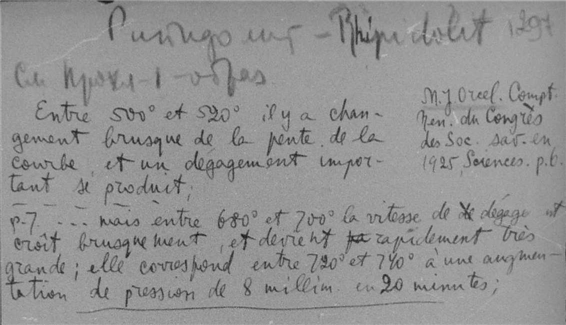 Рипидолит – Rhipidolit 1297
См прохл-1-образ
Entre 500° et 520° il y a chan-
gement brusque de la pente de la
courbe et un dégagement impor-
tant se produit;
M. J Orcel. Compt.
Ren. du Congrès
des Soc. sav. en
1925, Sciences. p. 6.
p. 7 ... mais entre 680° et 700° la vitesse de dégage nt
croît brusquement, et devient rapidement très
grande; elle correspond entre 720° et 740° à une augmen-
tation de pression de 8 millim. en 20 minutes;